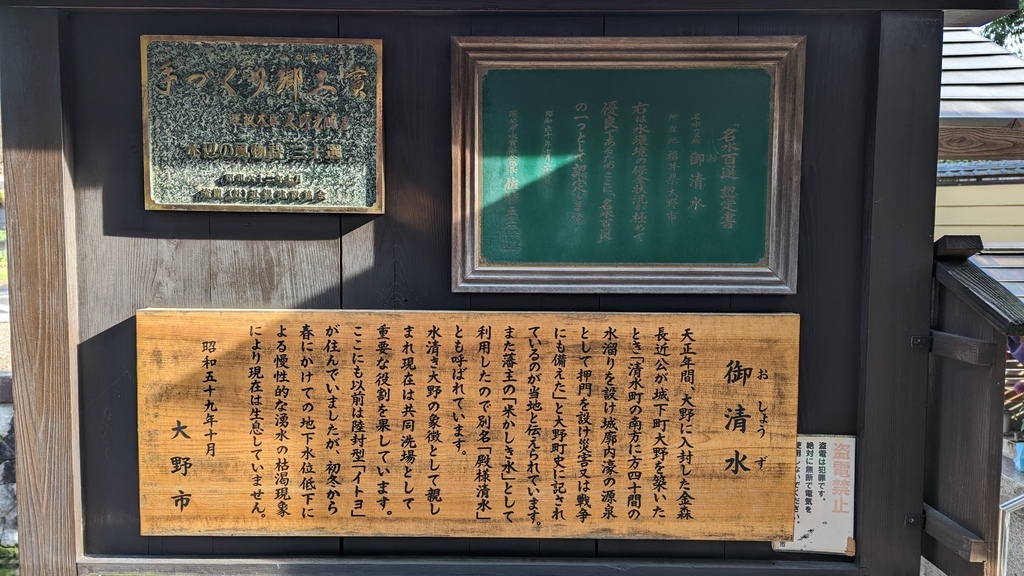 手づくり郷土賞
水辺の風物詩 三十選
名水百選 認定書
御清水
福井県大野市
御清水
おしょうず
天正年間、大野に入封した金森
長近公が城下町大野を築いた
とき「清水町の南方に方四十間の
水溜りを設け城廓内濠の源泉
として押門を設け災害又は戦争
にも備えた」と大野町史に記され
ているのが当地と伝えられています。
また藩主の「米かしき水」として
利用したので別名「殿様清水」
とも呼ばれています。
水清き大野の象徴として親し
まれ現在は共同洗場として
重要な役割を果しています。
ここにも以前は陸封型「イトヨ」
が住んでいましたが、初冬から
春にかけての地下水位低下に
よる慢性的な湧水の枯渇現象
により現在は生息していません。
昭和五十九年十月
大野市
盗電禁止
盗電は犯罪です。
絶対に無断で電気を
使用しないでください。